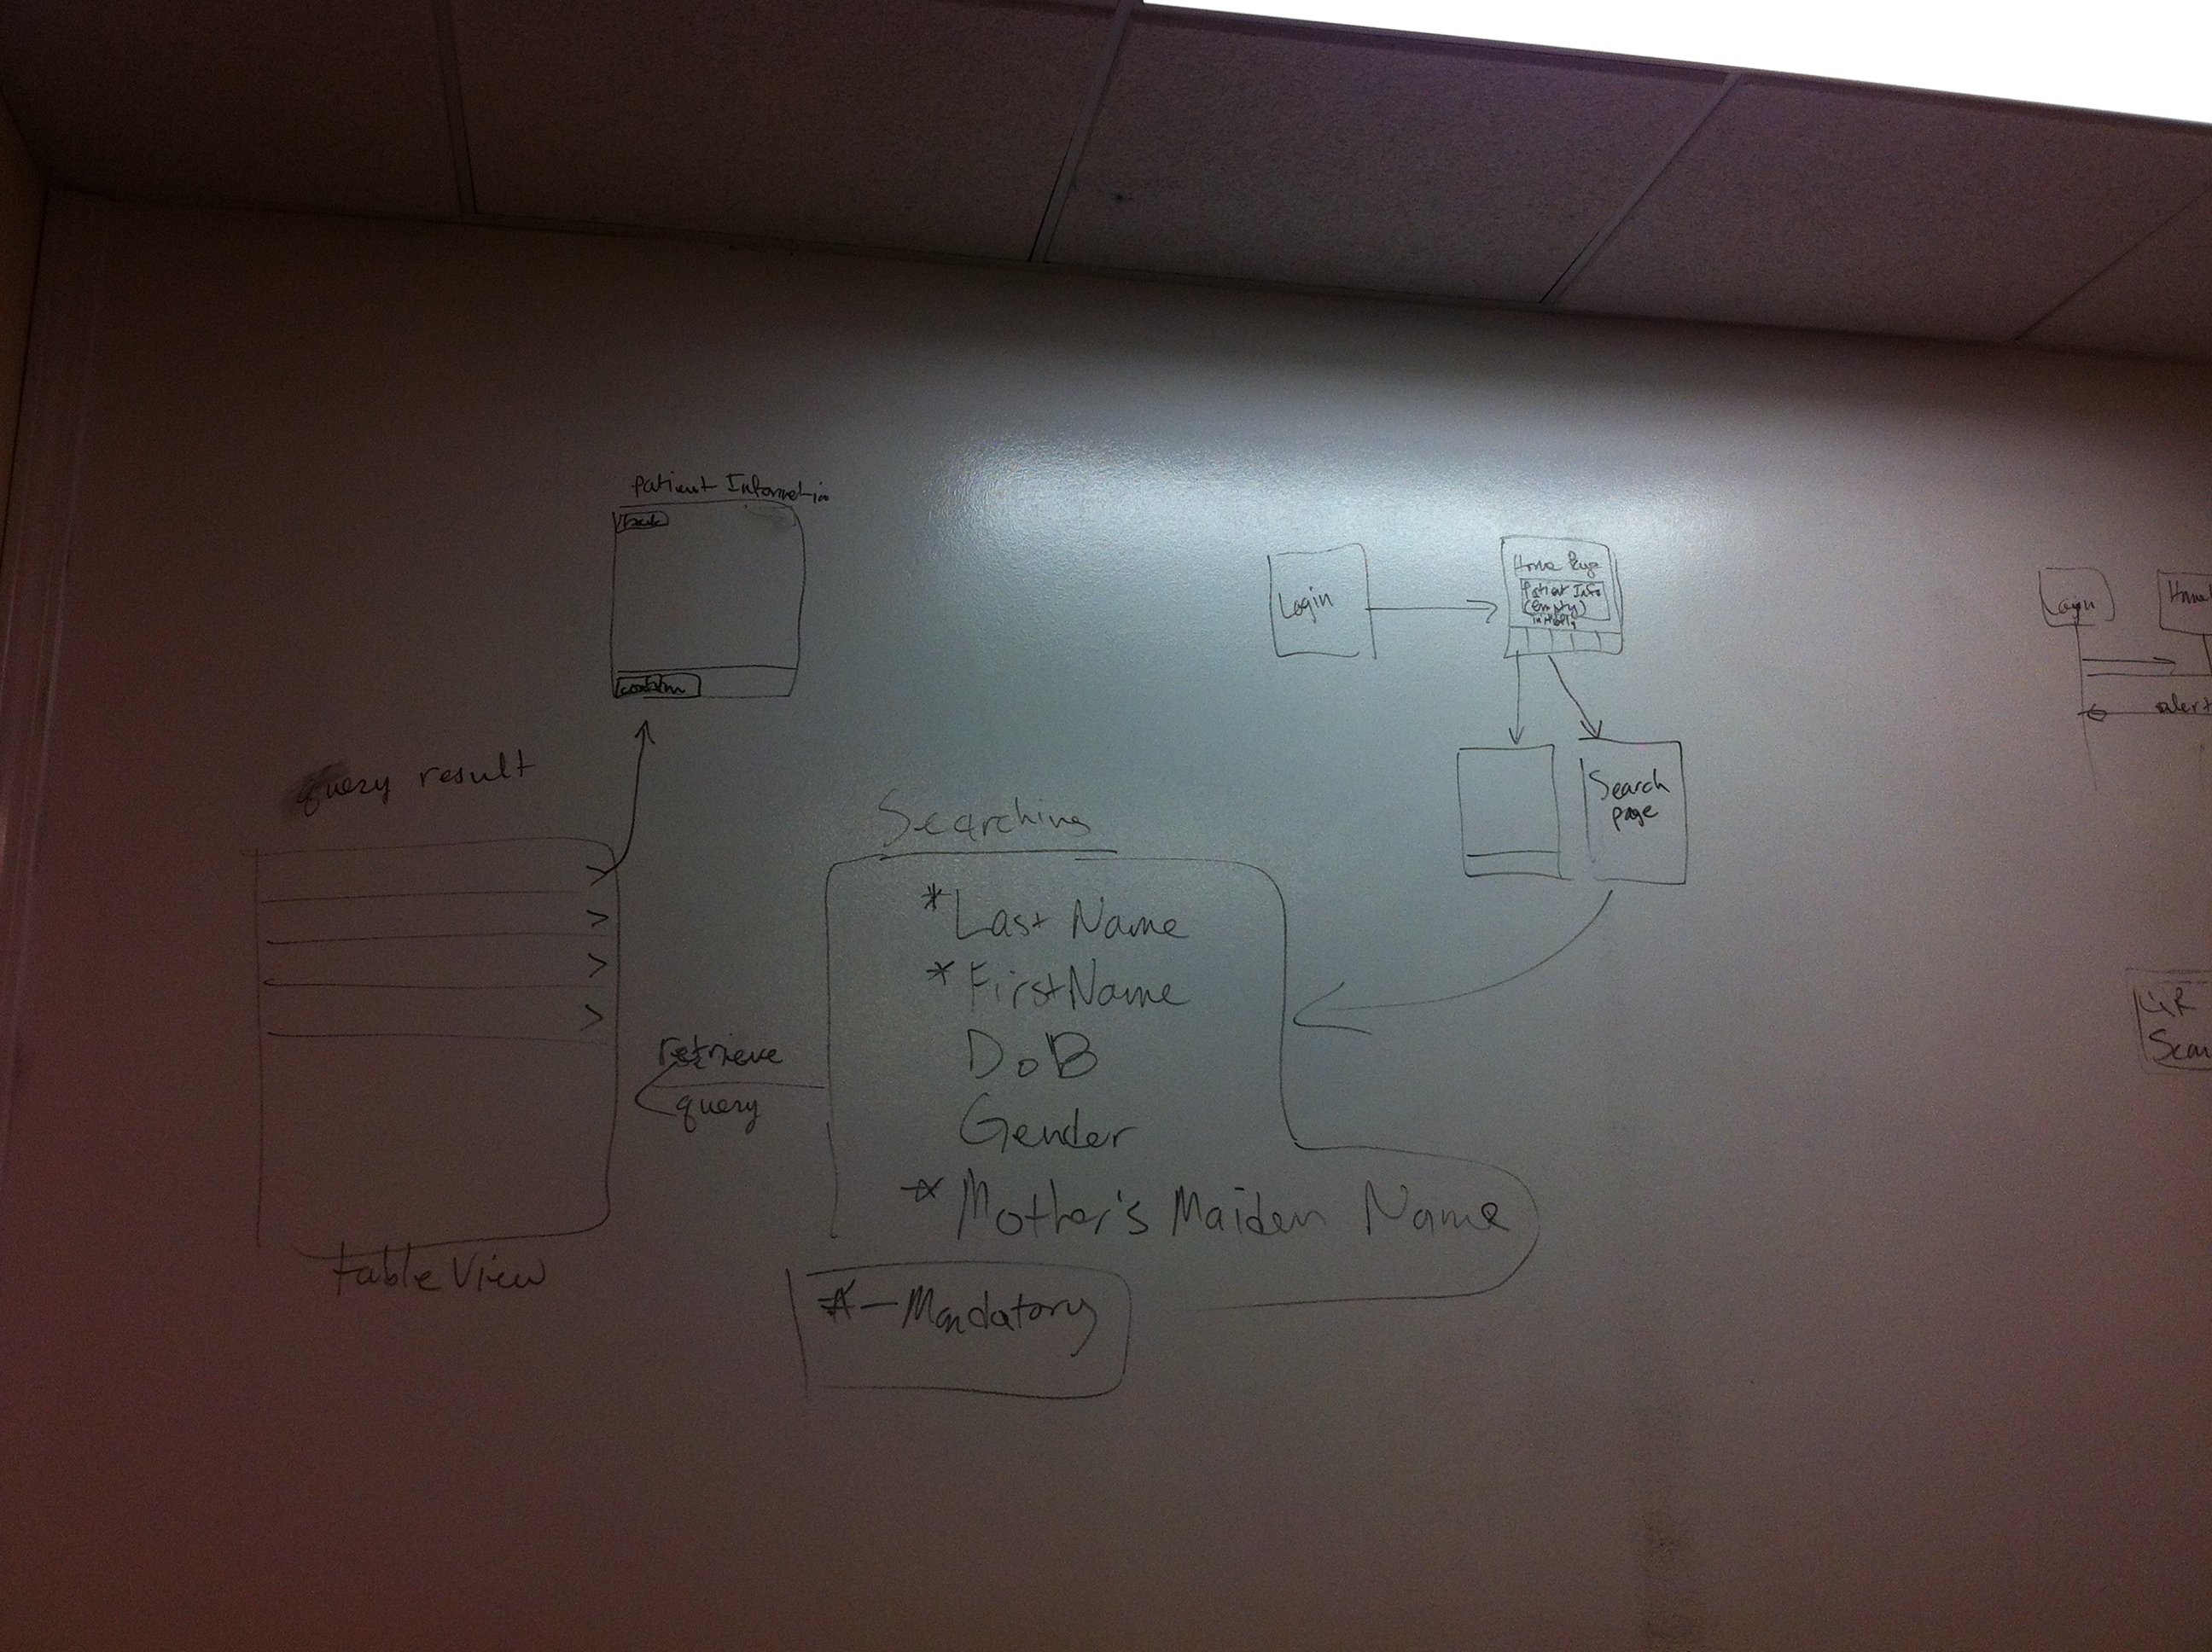 Patient Information
back
confirm
query result
table View
retrieve
query
Searching
*Last Name
*First Name
DoB
Gender
*Mother's Maiden Name
*-Mandatory
Login
Home Page
Patient Info
(empty)
initially
Search
page
Login
Home
alert
QR
Sear